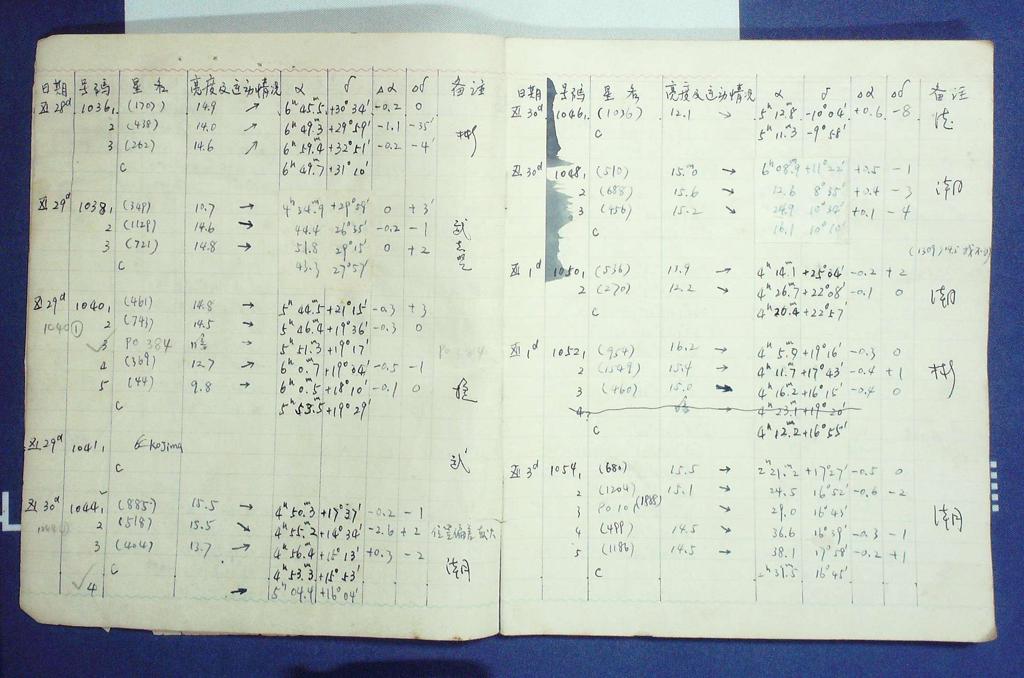 日期 号码 星名 亮度及运动情况 α δ Δα Δδ 备注
Ⅺ 28ᵈ 1036₁ (170) 14.9 ↗ 6ʰ45ᵐ.5 +30°34' -0.2 0
2 (438) 14.0 ↗ 6ʰ49ᵐ.3 +29°59' -1.1 -35'
3 (262) 14.6 ↗ 6ʰ59ᵐ.4 +32°51' -0.2 -4' 彬
C 6ʰ49.7 +31°10'
Ⅺ 29ᵈ 1038₁ (349) 10.7 → 4ʰ34ᵐ.9 +29°59' 0 +3'
2 (1129) 14.6 → 44.4 26°35' -0.2 -1
3 (721) 14.8 → 51.8 29°15' 0 +2
C 43.3 27°57'
Ⅺ 29ᵈ 1040₁ (461) 14.8 → 5ʰ44ᵐ.5 +21°15' -0.3 +3
1040① 2 (743) 14.5 → 5ʰ46ᵐ.4 +19°36' -0.3 0
3 PO 384 → 5ʰ51ᵐ.3 +19°17' PO 384
4 (369) 12.7 6ʰ0ᵐ.7 +19°34' -0.5 -1
5 (44) 9.8 → 6ʰ0ᵐ.5 +18°10' -0.1 0
C 5ʰ53ᵐ.5 +19°29'
Ⅺ 29ᵈ 1041₁ Kojima
C
Ⅺ 30ᵈ 1044₁ (885) 15.5 → 4ʰ50ᵐ.3 +17°37' -0.2 -1
2 (518) 15.5 ↘ 4ʰ55ᵐ.2 +14°34' -2.6 +2
3 (404) 13.7 → 4ʰ56ᵐ.4 +15°13' +0.3 -2
C 4ʰ53ᵐ.3 +15°53'
4 → 5ʰ04ᵐ.4 +16°04'
日期 号码 星名 亮度及运动情况 α δ Δα Δδ 备注
Ⅺ 30ᵈ 1046₁ (1036) 12.1 ↘ 5ʰ12ᵐ.8 -10°04' +0.6 -8
C 5ʰ11ᵐ.3 -9°58'
Ⅺ 30ᵈ 1048₁ (510) 15.0 → 6ʰ08ᵐ.9 +11°22' +0.5 -1
2 (688) 15.6 → 12.6 8°35' +0.4 -3
3 (456) 15.2 ↘ 24.9 10°34' +0.1 -4
C 16.1 10°10'
Ⅻ 1ᵈ 1050₁ (536) 11.9 → 4ʰ14ᵐ.1 +25°04' -0.2 +2
2 (270) 12.2 → 4ʰ26ᵐ.7 +22°08' -0.1 0
C 4ʰ20ᵐ.4 +22°57'
Ⅻ 1ᵈ 1052₁ (954) 16.2 → 4ʰ5ᵐ.9 +19°16' -0.3 0
2 (1549) 15.4 → 4ʰ11ᵐ.7 +17°43' -0.4 +1
3 (460) 15.0 → 4ʰ16ᵐ.2 +16°15' -0.4 0 彬
4? → 4ʰ23ᵐ.1 +19°20'
C 4ʰ12ᵐ.2 +16°55'
Ⅻ 3ᵈ 1054₁ (680) 15.5 → 2ʰ21ᵐ.2 +17°27' -0.5 0
2 (1204) 15.1 → 24.5 16°52' -0.6 -2
3 PO 10 (1888) → 29.0 16°43'
4 (499) 14.5 → 36.6 16°39' -0.3 -1
5 (1186) 14.5 → 38.1 17°58' -0.2 +1
C 2ʰ31ᵐ.5 16°45'